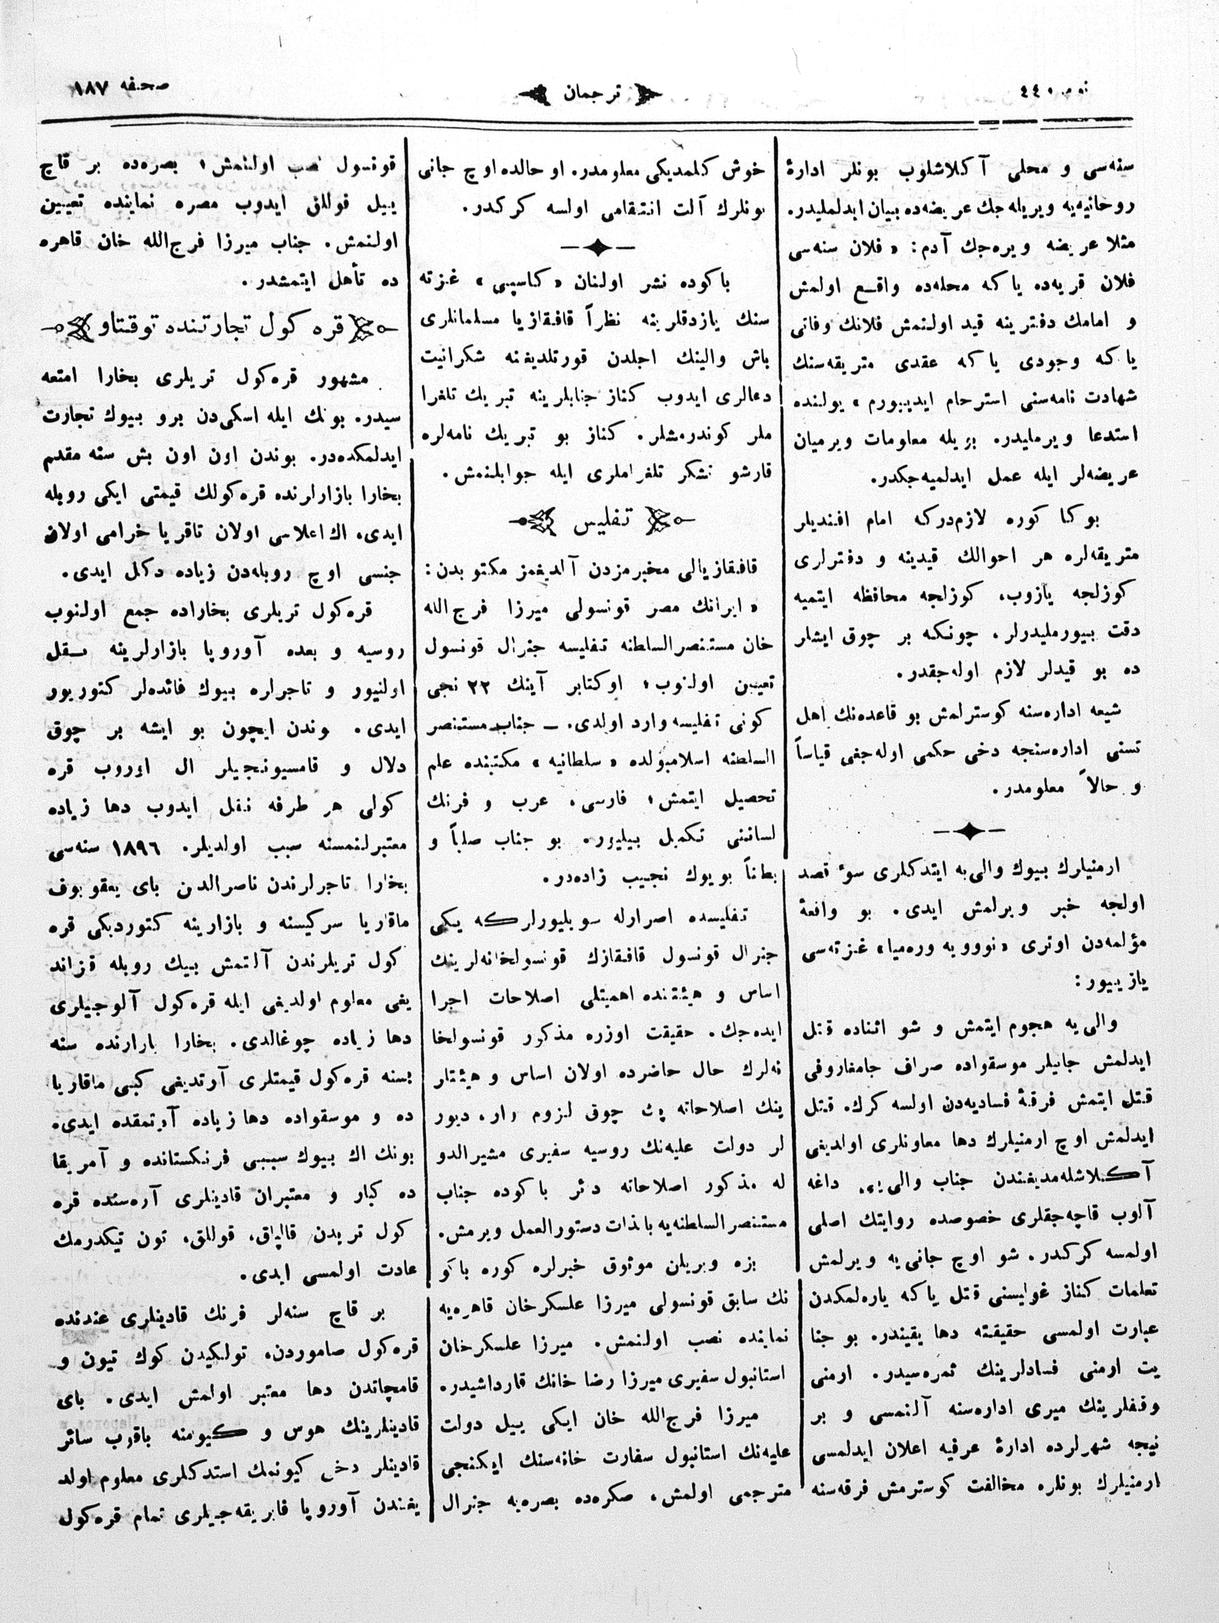 نومر ٤٤٠
ترجمان
صحفه ١٨٧
سنه‌سی و محلی آکلاشلوب بونلر ادارهٔ
روحانیه‌یه ویریله‌جك عریضه‌ده بیان ایدلملیدر.
مثلا عریضه ویره‌جك آدم: «فلان سنه‌سی
فلان قریه‌ده یا که محله‌ده واقع اولمش
و امامك دفترینه قید اولنمش فلانك وفاتی
یا که وجودی یا که عقدی متریقه‌سنك
شهادت نامه‌سنی استرحام ایدییورم» یولنده
استدعا ویرملیدر. بویله معلومات ویرمیان
عریضه‌لر ایله عمل ایدلمیه‌جکدر.
بوکا کوره لازم‌درکه امام افندیلر
متریقه‌لره هر احوالك قیدینه و دفترلری
کوزلجه یازوب، کوزلجه محافظه ایتمیه
دقت بیورملیدرلر. چونکه بر چوق ایشلر
ده بو قیدلر لازم اوله‌جقدر.
شیعه اداره‌سنه کوسترلمش بو قاعده‌نك اهل
تسنی اداره‌سنجه دخی حکمی اوله‌جغی قیاساً
و حالاً معلومدر.
ارمنیلرك بیوك والی‌یه ایتدکلری سوء قصد
اولجه خبر ویرلمش ایدی. بو واقعهٔ
مؤلمه‌دن اوتری «نووویه وره‌میا» غزته‌سی
یازییور:
والی‌یه هجوم ایتمش و شو اثناده قتل
ایدلمش جانیلر موسقواده صراف جامغاروفی
قتل ایتمش فرقهٔ فسادیه‌دن اولسه کرك. قتل
ایدلمش اوچ ارمنیلرك دها معاونلری اولدیغی
آکلاشله‌مدیغندن جناب والی‌یی داغه
آلوب قاچه‌جقلری خصوصده روایتك اصلی
اولمسه کرکدر. شو اوچ جانی‌یه ویرلمش
تعلمات کناز غولیسنی قتل یا که یاره‌لمکدن
عبارت اولمسی حقیقته دها یقیندر. بو جنا
یت ارمنی فسادلرینك ثمره‌سیدر. ارمنی
وقفلرینك میری اداره‌سنه آلنمسی و بر
نیجه شهرلرده ادارهٔ عرفیه اعلان ایدلمسی
ارمنیلرك بونلره مخالفت کوسترمش فرقه‌سنه
خوش کلمدیکی معلومدر. او حالده اوچ جانی
بونلرك آلت انتقامی اولسه کرکدر.
باکوده نشر اولنان «کاسپی» غزته
سنك یازدقلرینه نظراً قافقازیا مسلمانلری
باش والینك اجلدن قورتلدیغنه شکرانیت
دعالری ایدوب کناز جنابلرینه تبریك تلغرا
ملر کوندرمشلر. کناز بو تبریك نامه‌لره
قارشو تشکر تلغراملری ایله جوابلنمش.
تفلیس
قافقازیالی مخبرمزدن آلدیغمز مکتوبدن:
«ایرانك مصر قونسولی میرزا فرج‌الله
خان مستنصرالسلطنه تفلیسه جنرال قونسول
تعیین اولنوب، اوکتابر آینك ٢٢ نجی
کونی تفلیسه وارد اولدی. — جناب مستنصر
السلطنه اسلامبولده «سلطانیه» مکتبنده علم
تحصیل ایتمش؛ فارسی، عرب و فرنك
لسانینی تکمیل بیلیور. بو جناب صلباً و
بطناً بویوك نجیب زاده‌در.
تفلیسده اصرارله سویلیورلرکه یکی
جنرال قونسول قافقازك قونسولخانه‌لرینك
اساس و هیئتنده اهمیتلی اصلاحات اجرا
ایده‌جك. حقیقت اوزره مذکور قونسولخا
نه‌لرك حال حاضرده اولان اساس و هیئتلر
ینك اصلاحانه پك چوق لزوم وار. دیور
لر دولت علیه‌نك روسیه سفیری مشیرالدو
له مذکور اصلاحانه دئر باکوده جناب
مستنصرالسلطنه‌یه بالذات دستورالعمل ویرمش.
بزه ویریلن موثوق خبرلره کوره باکو
نك سابق قونسولی میرزا علسکرخان قاهره‌یه
نماینده نصب اولنمش. میرزا علسکرخان
استانبول سفیری میرزا رضا خانك قارداشیدر.
میرزا فرج‌الله خان ایکی ییل دولت
علیه‌نك استانبول سفارت خانه‌سنك ایکنجی
مترجمی اولمش، صکره‌ده بصره‌یه جنرال
قونسول نصب اولنمش؛ بصره‌ده بر قاچ
ییل قوللق ایدوب مصره نماینده تعیین
اولنمش. جناب میرزا فرج‌الله خان قاهره
ده تأهل ایتمشدر.
قره کول تجارتنده توقتاو
مشهور قره‌کول تریلری بخارا امتعه
سیدر. بونك ایله اسکی‌دن برو بیوك تجارت
ایدلمکده‌در. بوندن اون اون بش سنه مقدم
بخارا بازارلرنده قره‌کولك قیمتی ایکی روبله
ایدی، اك اعلاسی اولان تاقریا خرامی اولان
جنسی اوچ روبله‌دن زیاده دکل ایدی.
قره‌کول تریلری بخاراده جمع اولنوب
روسیه و بعده آوروپا بازارلرینه نقل
اولنیور و تاجرلره بیوك فائده‌لر کتوریور
ایدی. بوندن ایچون بو ایشه بر چوق
دلال و قامسیونجیلر ال اوروب قره
کولی هر طرفه نقل ایدوب دها زیاده
معتبرلنمسنه سبب اولدیلر. ١٨٩٦ سنه‌سی
بخارا تاجرلرندن ناصرالدن بای یعقوبوف
ماقاریا سرکیسنه و بازارینه کتوردیکی قره
کول تریلرندن آلتمش بیك روبله قزاند
یغی معلوم اولدیغی ایله قره‌کول آلوجیلری
دها زیاده چوغالدی. بخارا بازارنده سنه
بسنه قره‌کول قیمتلری آرتدیغی کبی ماقاریا
ده و موسقواده دها زیاده آرتمقده ایدی.
بونك اك بیوك سببی فرنکستانده و آمریقا
ده کبار و معتبران قادینلری آره‌سنده قره
کول تریدن قالپاق، قوللق، تون تیکدرمك
عادت اولمسی ایدی.
بر قاچ سنه‌لر فرنك قادینلری عندنده
قره‌کول صاموردن، تولکیدن کوك تیون و
قامچاتدن دها معتبر اولمش ایدی. بای
قادینلرینك هوس و کیومنه باقرب سائر
قادینلر دخی کیونمك استدکلری معلوم اولد
یغندن آوروپا فابریقه‌جیلری تمام قره‌کول